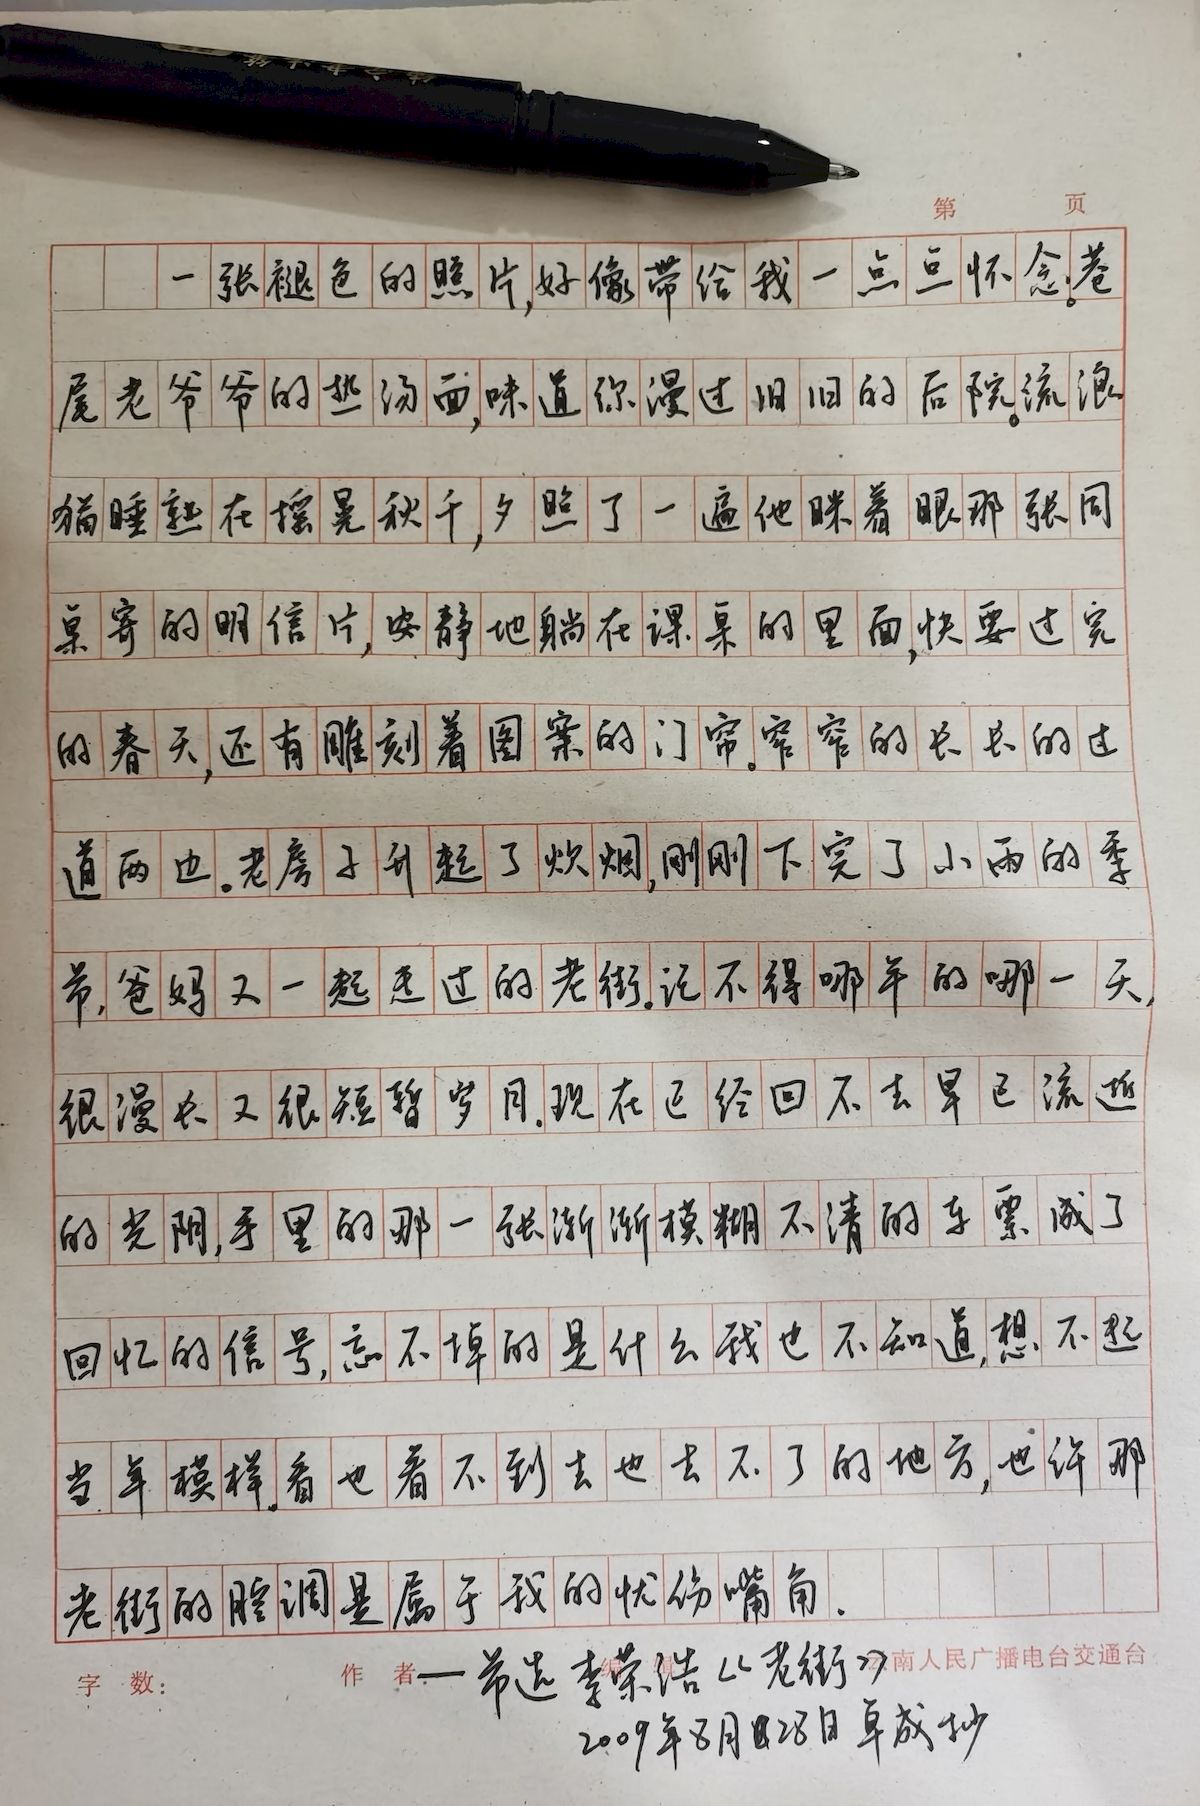 第 页
一张褪色的照片,好像带给我一点点怀念。巷
尾老爷爷的热汤面,味道弥漫过旧旧的后院。流浪
猫睡熟在摇晃秋千,夕照了一遍他眯着眼那张同
桌寄的明信片,安静地躺在课桌的里面,快要过完
的春天,还有雕刻着图案的门帘。窄窄的长长的过
道两边。老房子升起了炊烟,刚刚下完了小雨的季
节,爸妈又一起走过的老街。记不得哪年的哪一天,
很漫长又很短暂岁月.现在已经回不去早已流逝
的光阴,手里的那一张渐渐模糊不清的车票成了
回忆的信号,忘不掉的是什么我也不知道,想不起
当年模样.看也看不到去也去不了的地方,也许那
老街的腔调是属于我的忧伤嘴角.
字数: 作者 编辑 云南人民广播电台交通台
—节选李荣浩《老街》
2009年8月28日草成抄